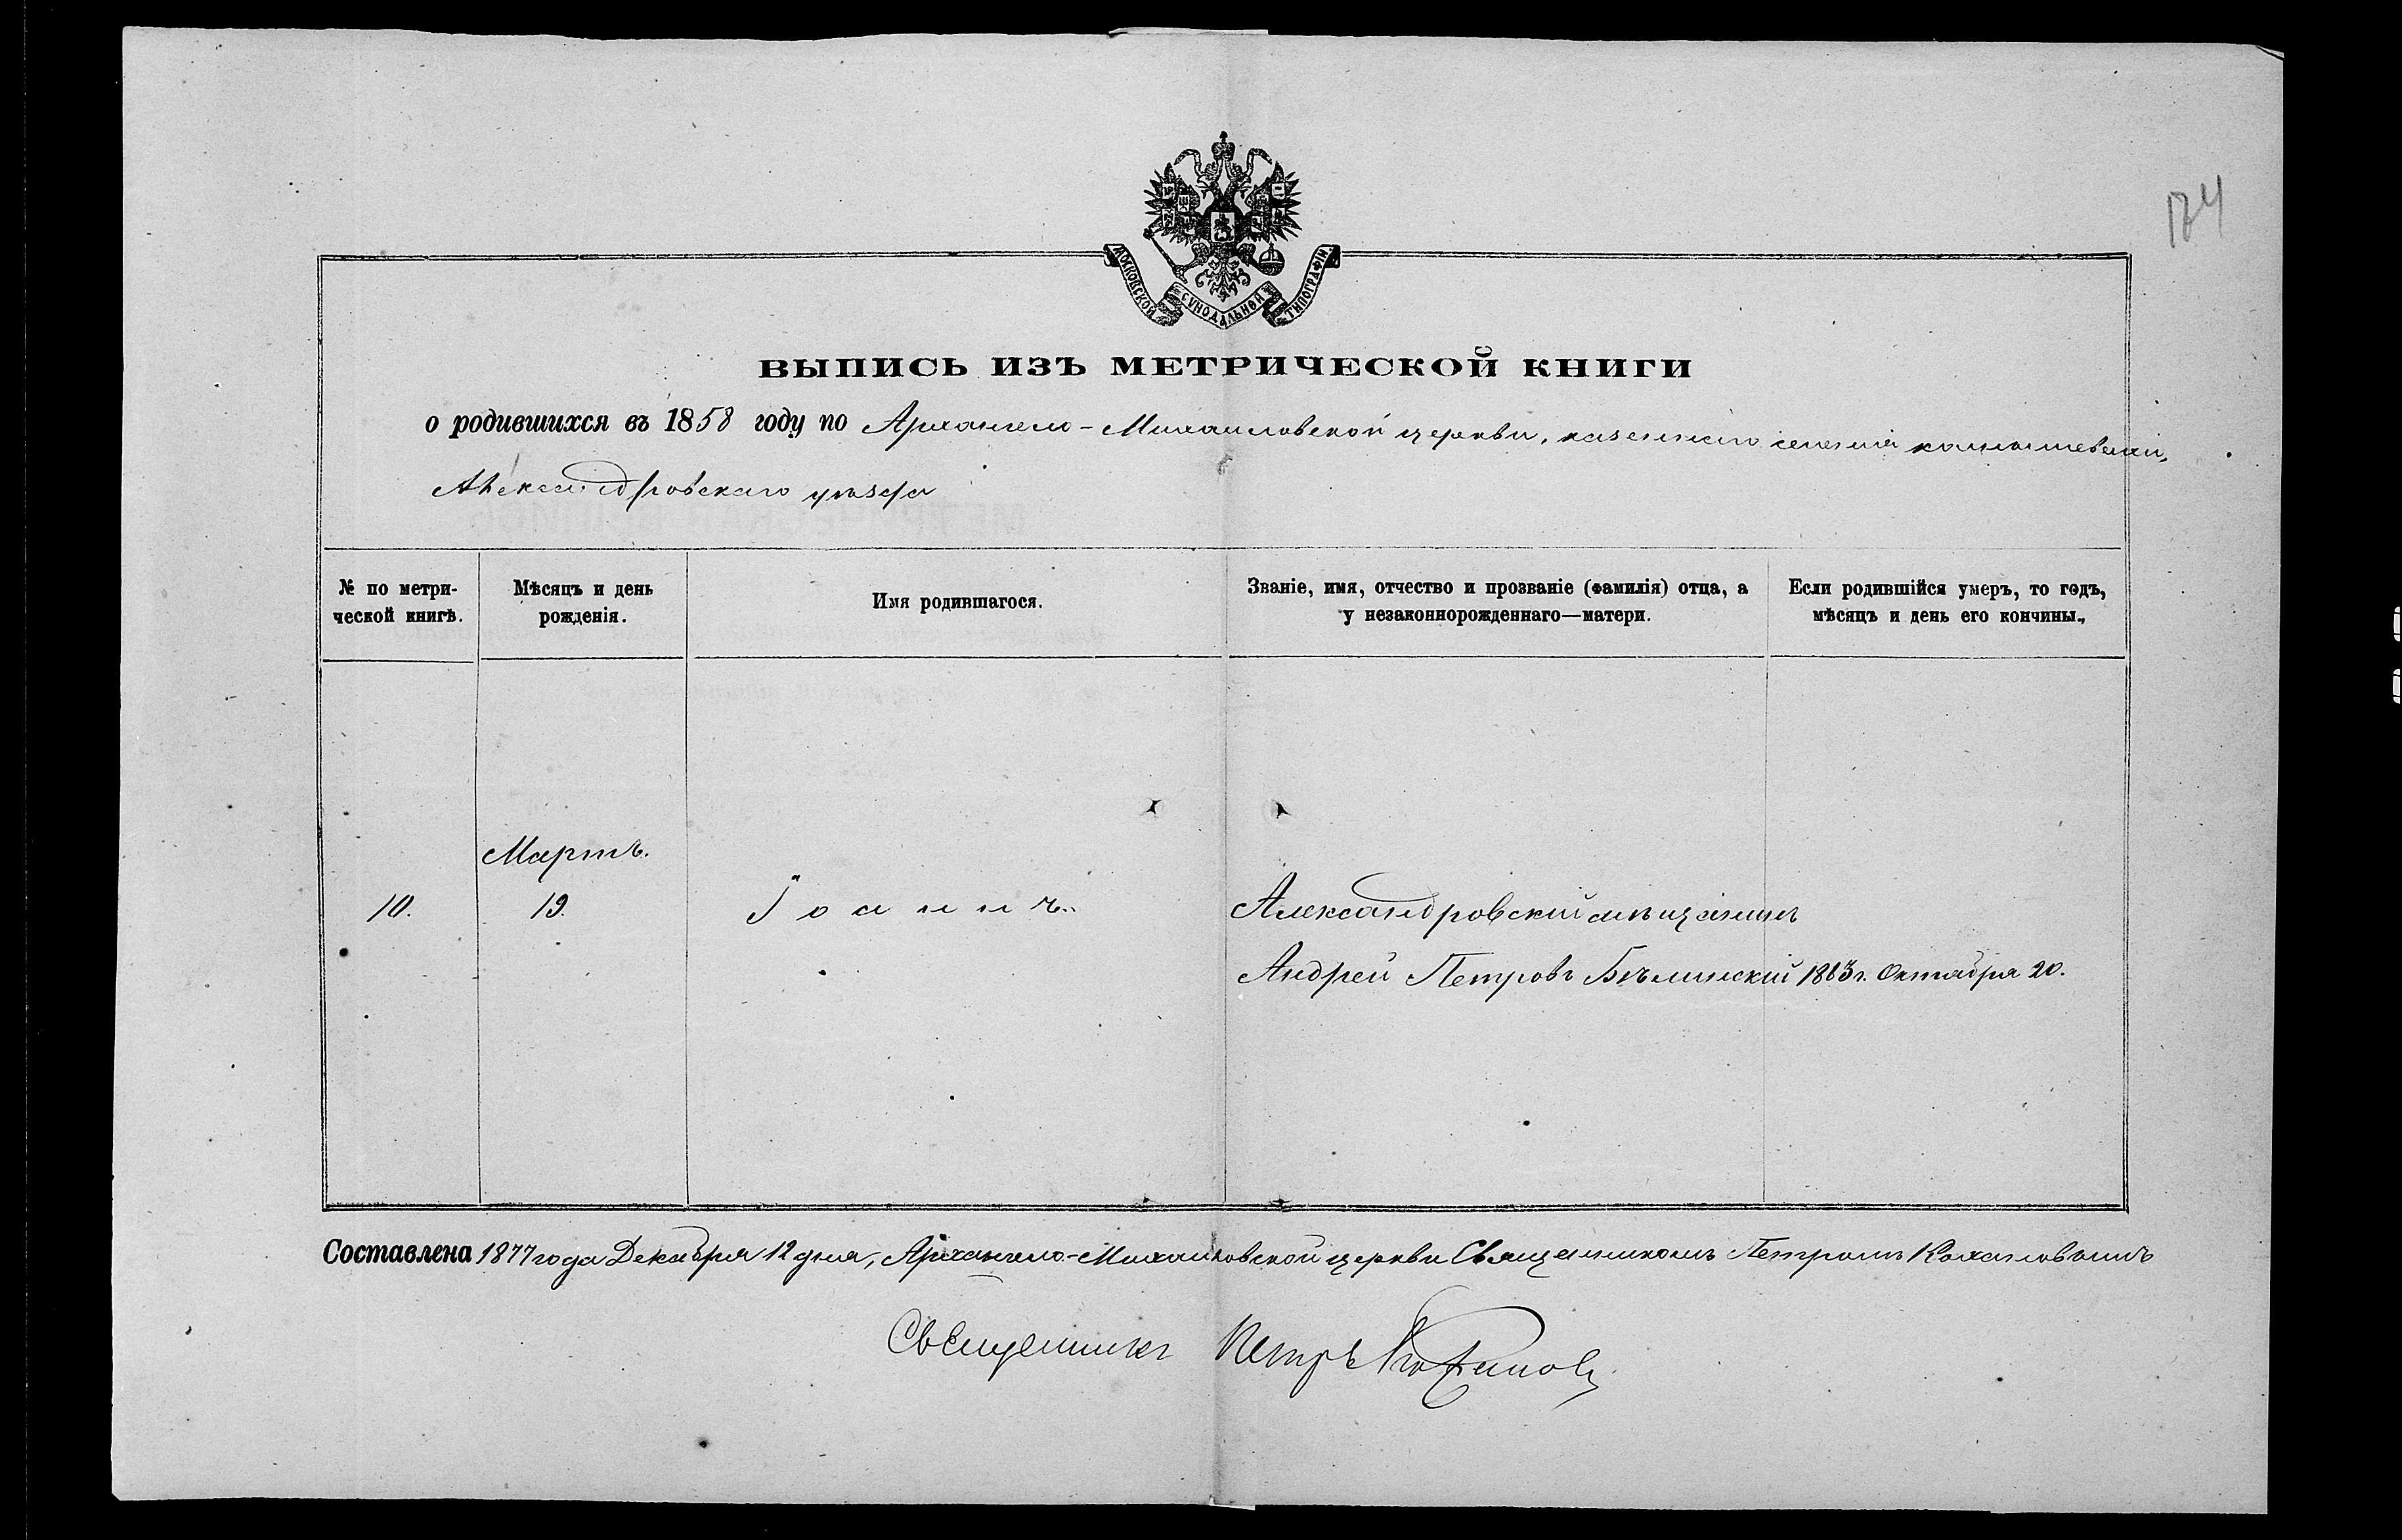 174
МОСКОВСКОЙ СУНОДАЛЬНОЙ ТИПОГРАФІИ.
ВЫПИСЬ ИЗЪ МЕТРИЧЕСКОЙ КНИГИ
о родившихся въ 1858 году по Архангело-Михаиловской церкви, казеннаго селенія
Александровскаго уѣзда
№ по метри-
ческой книгѣ.
Мѣсяцъ и день
рожденія.
Имя родившагося.
Званіе, имя, отчество и прозваніе (фамилія) отца, а
у незаконнорожденнаго—матери.
Если родившійся умеръ, то годъ,
мѣсяцъ и день его кончины.
Мартъ.
10. 19. Іоаннъ. Александровскій мѣщанинъ
Андрей Петровъ Бѣлинскій 1863 г. Октября 20.
Составлена 1877 года Декабря 12 дня, Архангело-Михаиловской церкви Священникомъ Петромъ
Священникъ Петръ